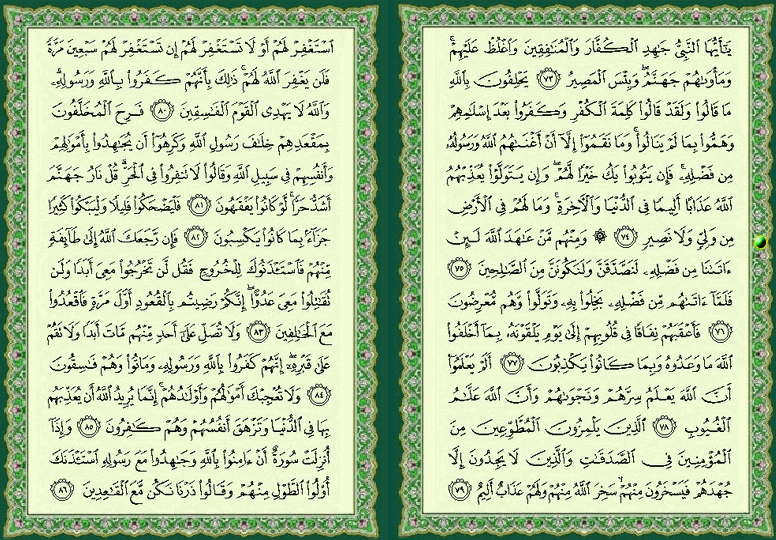 يَٰٓأَيُّهَا ٱلنَّبِىُّ جَٰهِدِ ٱلْكُفَّارَ وَٱلْمُنَٰفِقِينَ وَٱغْلُظْ عَلَيْهِمْ ۚ
وَمَأْوَىٰهُمْ جَهَنَّمُ ۖ وَبِئْسَ ٱلْمَصِيرُ ﴿٧٣﴾ يَحْلِفُونَ بِٱللَّهِ
مَا قَالُوا۟ وَلَقَدْ قَالُوا۟ كَلِمَةَ ٱلْكُفْرِ وَكَفَرُوا۟ بَعْدَ إِسْلَٰمِهِمْ
وَهَمُّوا۟ بِمَا لَمْ يَنَالُوا۟ ۚ وَمَا نَقَمُوٓا۟ إِلَّآ أَنْ أَغْنَىٰهُمُ ٱللَّهُ وَرَسُولُهُۥ
مِن فَضْلِهِۦ ۚ فَإِن يَتُوبُوا۟ يَكُ خَيْرًا لَّهُمْ ۖ وَإِن يَتَوَلَّوْا۟ يُعَذِّبْهُمُ
ٱللَّهُ عَذَابًا أَلِيمًا فِى ٱلدُّنْيَا وَٱلْءَاخِرَةِ ۚ وَمَا لَهُمْ فِى ٱلْأَرْضِ
مِن وَلِىٍّ وَلَا نَصِيرٍ ﴿٧٤﴾ ۞ وَمِنْهُم مَّنْ عَٰهَدَ ٱللَّهَ لَئِنْ
ءَاتَىٰنَا مِن فَضْلِهِۦ لَنَصَّدَّقَنَّ وَلَنَكُونَنَّ مِنَ ٱلصَّٰلِحِينَ ﴿٧٥﴾
فَلَمَّآ ءَاتَىٰهُم مِّن فَضْلِهِۦ بَخِلُوا۟ بِهِۦ وَتَوَلَّوا۟ وَّهُم مُّعْرِضُونَ
﴿٧٦﴾ فَأَعْقَبَهُمْ نِفَاقًا فِى قُلُوبِهِمْ إِلَىٰ يَوْمِ يَلْقَوْنَهُۥ بِمَآ أَخْلَفُوا۟
ٱللَّهَ مَا وَعَدُوهُ وَبِمَا كَانُوا۟ يَكْذِبُونَ ﴿٧٧﴾ أَلَمْ يَعْلَمُوٓا۟
أَنَّ ٱللَّهَ يَعْلَمُ سِرَّهُمْ وَنَجْوَىٰهُمْ وَأَنَّ ٱللَّهَ عَلَّٰمُ
ٱلْغُيُوبِ ﴿٧٨﴾ ٱلَّذِينَ يَلْمِزُونَ ٱلْمُطَّوِّعِينَ مِنَ
ٱلْمُؤْمِنِينَ فِى ٱلصَّدَقَٰتِ وَٱلَّذِينَ لَا يَجِدُونَ إِلَّا
جُهْدَهُمْ فَيَسْخَرُونَ مِنْهُمْ ۙ سَخِرَ ٱللَّهُ مِنْهُمْ وَلَهُمْ عَذَابٌ أَلِيمٌ ﴿٧٩﴾
ٱسْتَغْفِرْ لَهُمْ أَوْ لَا تَسْتَغْفِرْ لَهُمْ إِن تَسْتَغْفِرْ لَهُمْ سَبْعِينَ مَرَّةً
فَلَن يَغْفِرَ ٱللَّهُ لَهُمْ ۚ ذَٰلِكَ بِأَنَّهُمْ كَفَرُوا۟ بِٱللَّهِ وَرَسُولِهِۦ ۗ
وَٱللَّهُ لَا يَهْدِى ٱلْقَوْمَ ٱلْفَٰسِقِينَ ﴿٨٠﴾ فَرِحَ ٱلْمُخَلَّفُونَ
بِمَقْعَدِهِمْ خِلَٰفَ رَسُولِ ٱللَّهِ وَكَرِهُوٓا۟ أَن يُجَٰهِدُوا۟ بِأَمْوَٰلِهِمْ
وَأَنفُسِهِمْ فِى سَبِيلِ ٱللَّهِ وَقَالُوا۟ لَا تَنفِرُوا۟ فِى ٱلْحَرِّ ۗ قُلْ نَارُ جَهَنَّمَ
أَشَدُّ حَرًّا ۚ لَّوْ كَانُوا۟ يَفْقَهُونَ ﴿٨١﴾ فَلْيَضْحَكُوا۟ قَلِيلًا وَلْيَبْكُوا۟ كَثِيرًا
جَزَآءًۢ بِمَا كَانُوا۟ يَكْسِبُونَ ﴿٨٢﴾ فَإِن رَّجَعَكَ ٱللَّهُ إِلَىٰ طَآئِفَةٍ
مِّنْهُمْ فَٱسْتَـْٔذَنُوكَ لِلْخُرُوجِ فَقُل لَّن تَخْرُجُوا۟ مَعِىَ أَبَدًا وَلَن
تُقَٰتِلُوا۟ مَعِىَ عَدُوًّا ۖ إِنَّكُمْ رَضِيتُم بِٱلْقُعُودِ أَوَّلَ مَرَّةٍ فَٱقْعُدُوا۟
مَعَ ٱلْخَٰلِفِينَ ﴿٨٣﴾ وَلَا تُصَلِّ عَلَىٰٓ أَحَدٍ مِّنْهُم مَّاتَ أَبَدًا وَلَا تَقُمْ
عَلَىٰ قَبْرِهِۦٓ ۖ إِنَّهُمْ كَفَرُوا۟ بِٱللَّهِ وَرَسُولِهِۦ وَمَاتُوا۟ وَهُمْ فَٰسِقُونَ
﴿٨٤﴾ وَلَا تُعْجِبْكَ أَمْوَٰلُهُمْ وَأَوْلَٰدُهُمْ ۚ إِنَّمَا يُرِيدُ ٱللَّهُ أَن يُعَذِّبَهُم
بِهَا فِى ٱلدُّنْيَا وَتَزْهَقَ أَنفُسُهُمْ وَهُمْ كَٰفِرُونَ ﴿٨٥﴾ وَإِذَآ
أُنزِلَتْ سُورَةٌ أَنْ ءَامِنُوا۟ بِٱللَّهِ وَجَٰهِدُوا۟ مَعَ رَسُولِهِ ٱسْتَـْٔذَنَكَ
أُو۟لُوا۟ ٱلطَّوْلِ مِنْهُمْ وَقَالُوا۟ ذَرْنَا نَكُن مَّعَ ٱلْقَٰعِدِينَ ﴿٨٦﴾